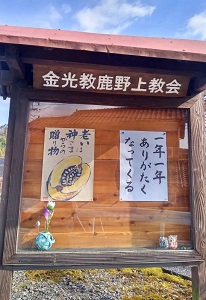 金光教鹿野上教会
一年一年
ありがたく
なってくる
老いは
神さま
からの
贈り物